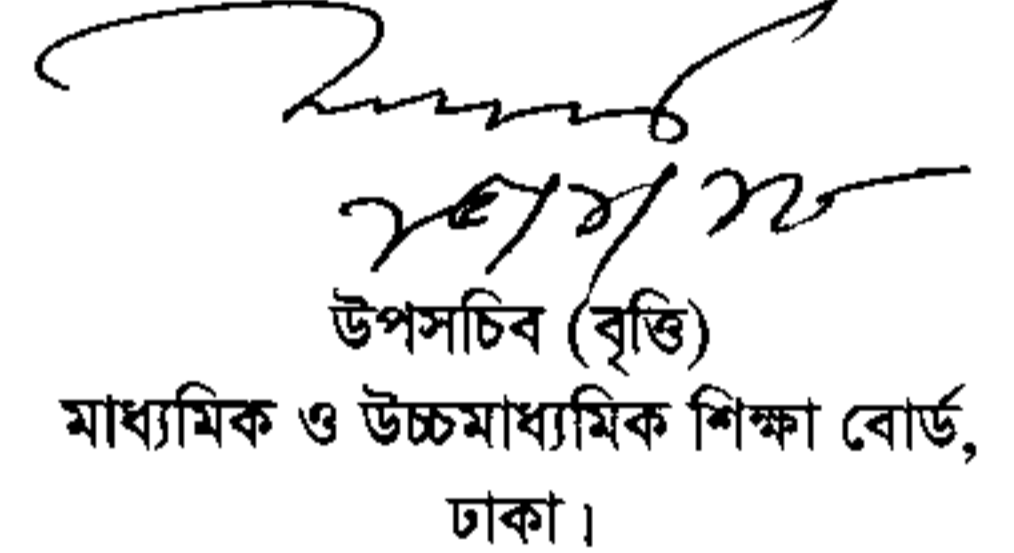 উপসচিব (বৃত্তি)
মাধ্যমিক ও উচ্চমাধ্যমিক শিক্ষা বোর্ড,
ঢাকা।